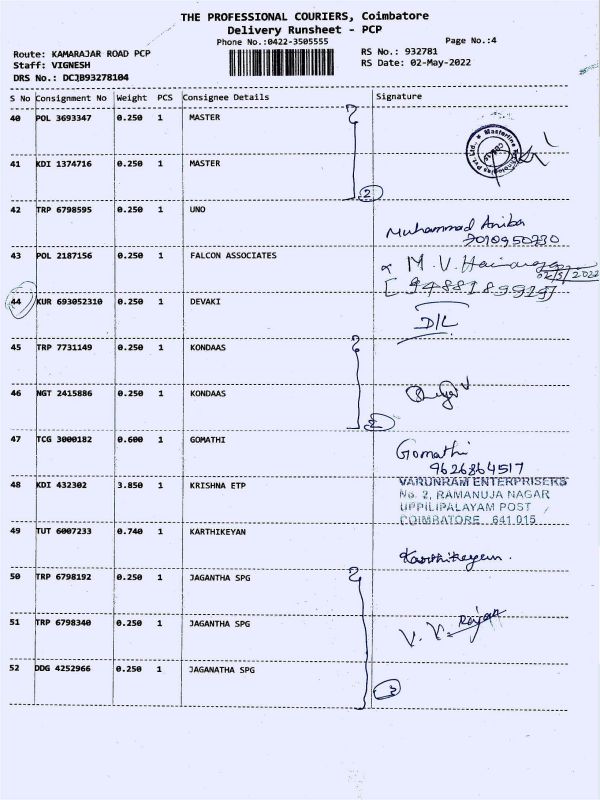 THE PROFESSIONAL COURIERS, Coimbatore
Delivery Runsheet - PCP
Phone No.:0422-3505555
Page No.:4
Route: KAMARAJAR ROAD PCP
RS No.: 932781
Staff: VIGNESH
RS Date: 02-May-2022
DRS No.: DCJB93278104
S No Consignment No Weight PCS Consignee Details Signature
40 POL 3693347 0.250 1 MASTER
41 KDI 1374716 0.250 1 MASTER
2
42 TRP 6798595 0.250 1 UNO
Muhammad
7010950230
43 POL 2187156 0.250 1 FALCON ASSOCIATES
M.V.
02/5/2022
[9488189919]
44 KUR 693052310 0.250 1 DEVAKI
D/L
45 TRP 7731149 0.250 1 KONDAAS
46 NGT 2415886 0.250 1 KONDAAS
2
47 TCG 3000182 0.600 1 GOMATHI
Gomathi
9626864517
48 KDI 432302 3.850 1 KRISHNA ETP
VARUNRAM ENTERPRISERS
No. 2, RAMANUJA NAGAR
UPPILIPALAYAM POST
COIMBATORE 641 015
49 TUT 6007233 0.740 1 KARTHIKEYAN
Karthikeyan.
50 TRP 6798192 0.250 1 JAGANTHA SPG
51 TRP 6798340 0.250 1 JAGANTHA SPG
V. V. Rajan
52 DDG 4252966 0.250 1 JAGANATHA SPG
3